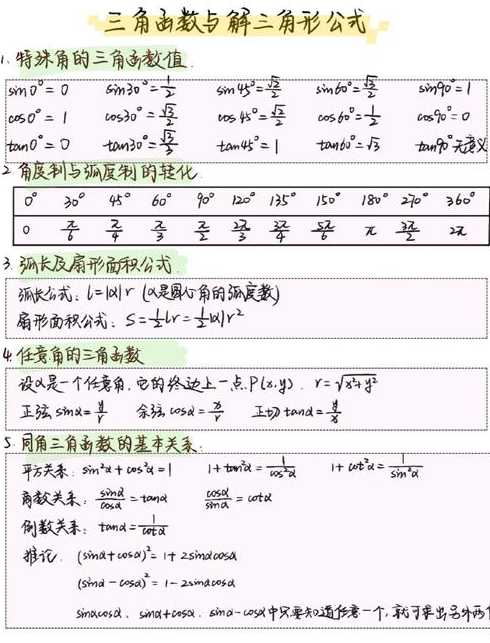 三角函数与解三角形公式
1. 特殊角的三角函数值.
sin0°=0 sin30°=1/2 sin45°=√2/2 sin60°=√3/2 sin90°=1
cos0°=1 cos30°=√3/2 cos45°=√2/2 cos60°=1/2 cos90°=0
tan0°=0 tan30°=√3/3 tan45°=1 tan60°=√3 tan90°无意义
2. 角度制与弧度制的转化
0° 30° 45° 60° 90° 120° 135° 150° 180° 270° 360°
0 π/6 π/4 π/3 π/2 2π/3 3π/4 5π/6 π 3π/2 2π
3. 弧长及扇形面积公式.
弧长公式: l=|α|r (α是圆心角的弧度数)
扇形面积公式: S=1/2lr=1/2|α|r²
4. 任意角的三角函数
设α是一个任意角,它的终边上一点P(x,y), r=√x²+y²
正弦sinα=y/r 余弦cosα=x/r 正切tanα=y/x
5. 同角三角函数的基本关系.
平方关系: sin²α+cos²α=1 1+tan²α=1/cos²α 1+cot²α=1/sin²α
商数关系: sinα/cosα=tanα cosα/sinα=cotα
倒数关系: tanα=1/cotα
推论: (sinα+cosα)²=1+2sinαcosα
(sinα-cosα)²=1-2sinαcosα
sinαcosα、sinα+cosα、sinα-cosα中只要知道任意一个,就可求出另外两